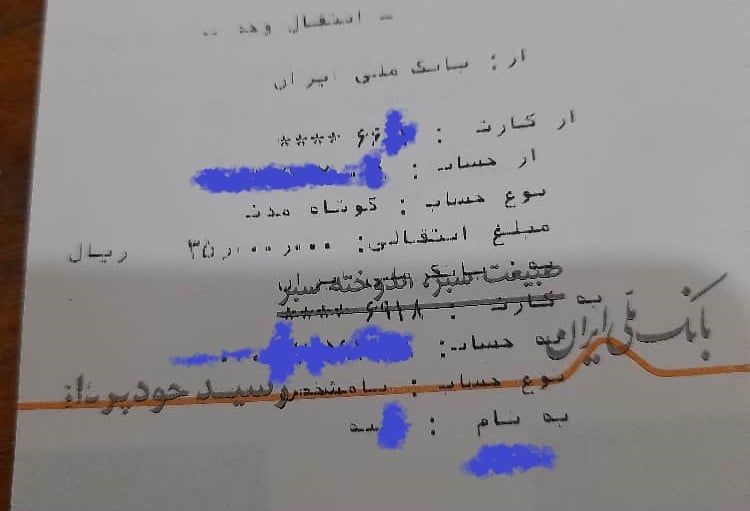 - انتقال وجه --
از: بانک ملی ایران
از کارت : ۶۶ ****
از حساب :
نوع حساب : کوتاه مدت
مبلغ انتقالی: ۳۵,۰۰۰,۰۰۰ ریال
طبیعت سبز، اندوخته سبز
به کارت : ۶۹۱۸ ****
بانک ملی ایران
به حساب:
نوع حساب :
رسید خودپرداز
به نام :